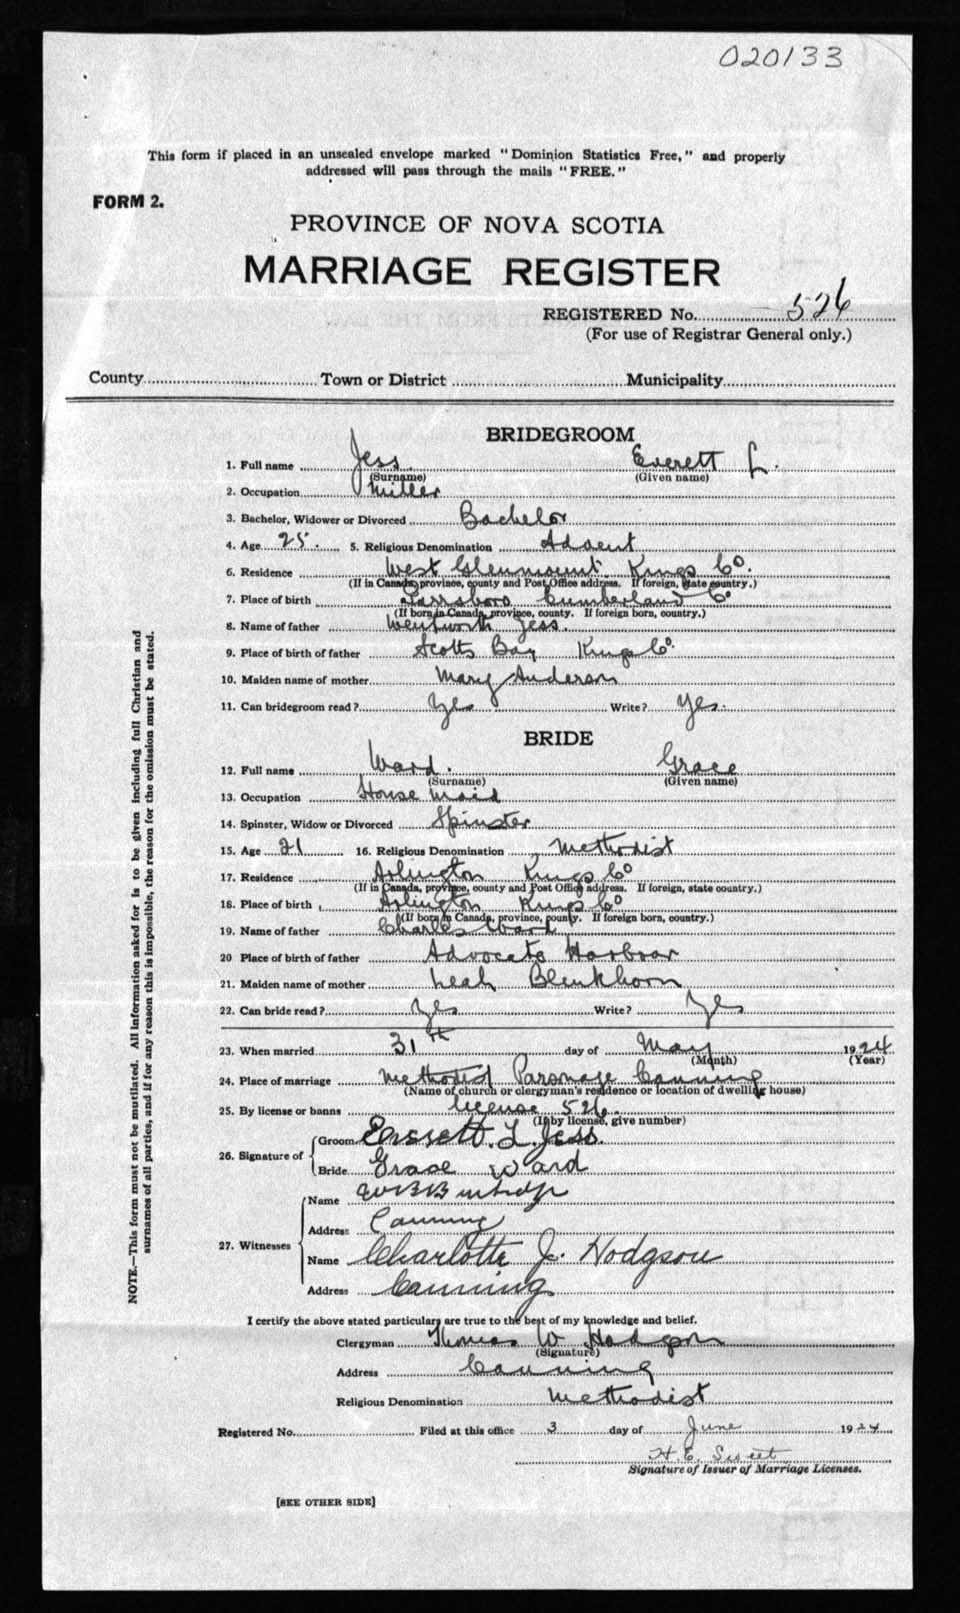 020133
This form if placed in an unsealed envelope marked "Dominion Statistics Free," and properly
addressed will pass through the mails "FREE."
FORM 2.
PROVINCE OF NOVA SCOTIA
MARRIAGE REGISTER
REGISTERED No. 526
(For use of Registrar General only.)
County Town or District Municipality
BRIDEGROOM
1. Full name Jess Everett L.
(Surname) (Given name)
2. Occupation Miller
3. Bachelor, Widower or Divorced Bachelor
4. Age 25. 5. Religious Denomination Advent
6. Residence West Glenmount Kings Co.
(If in Canada, province, county and Post Office address. If foreign, state country.)
7. Place of birth Parrsboro Cumberland Co
(If born in Canada, province, county. If foreign born, country.)
8. Name of father Wentworth Jess.
9. Place of birth of father Scotts Bay Kings Co.
10. Maiden name of mother Mary Anderson
11. Can bridegroom read? Yes Write? Yes.
BRIDE
12. Full name Ward. Grace
(Surname) (Given name)
13. Occupation House maid
14. Spinster, Widow or Divorced Spinster
15. Age 21 16. Religious Denomination Methodist
17. Residence Arlington Kings Co
(If in Canada, province, county and Post Office address. If foreign, state country.)
18. Place of birth Arlington Kings Co
(If born in Canada, province, county. If foreign born, country.)
19. Name of father Charles Ward
20 Place of birth of father Advocate Harbour
21. Maiden name of mother Leah Blenkhorn
22. Can bride read? Yes Write? Yes
23. When married 31th day of May 1924
(Month) (Year)
24. Place of marriage Methodist Parsonage Canning
(Name of church or clergyman's residence or location of dwelling house)
25. By license or banns license 526.
(If by license, give number)
26. Signature of Groom Everett. L. Jess.
Bride Grace Ward
27. Witnesses Name
Address Canning
Name Charlotte J. Hodgson
Address Canning
I certify the above stated particulars are true to the best of my knowledge and belief.
Clergyman Thomas W Hodgson
(Signature)
Address Canning
Religious Denomination Methodist
Registered No. Filed at this office 3 day of June 1924
H. E. Sweet
Signature of Issuer of Marriage Licenses.
[SEE OTHER SIDE]
NOTE.—This form must not be mutilated. All information asked for is to be given including full Christian and
surnames of all parties, and if for any reason this is impossible, the reason for the omission must be stated.